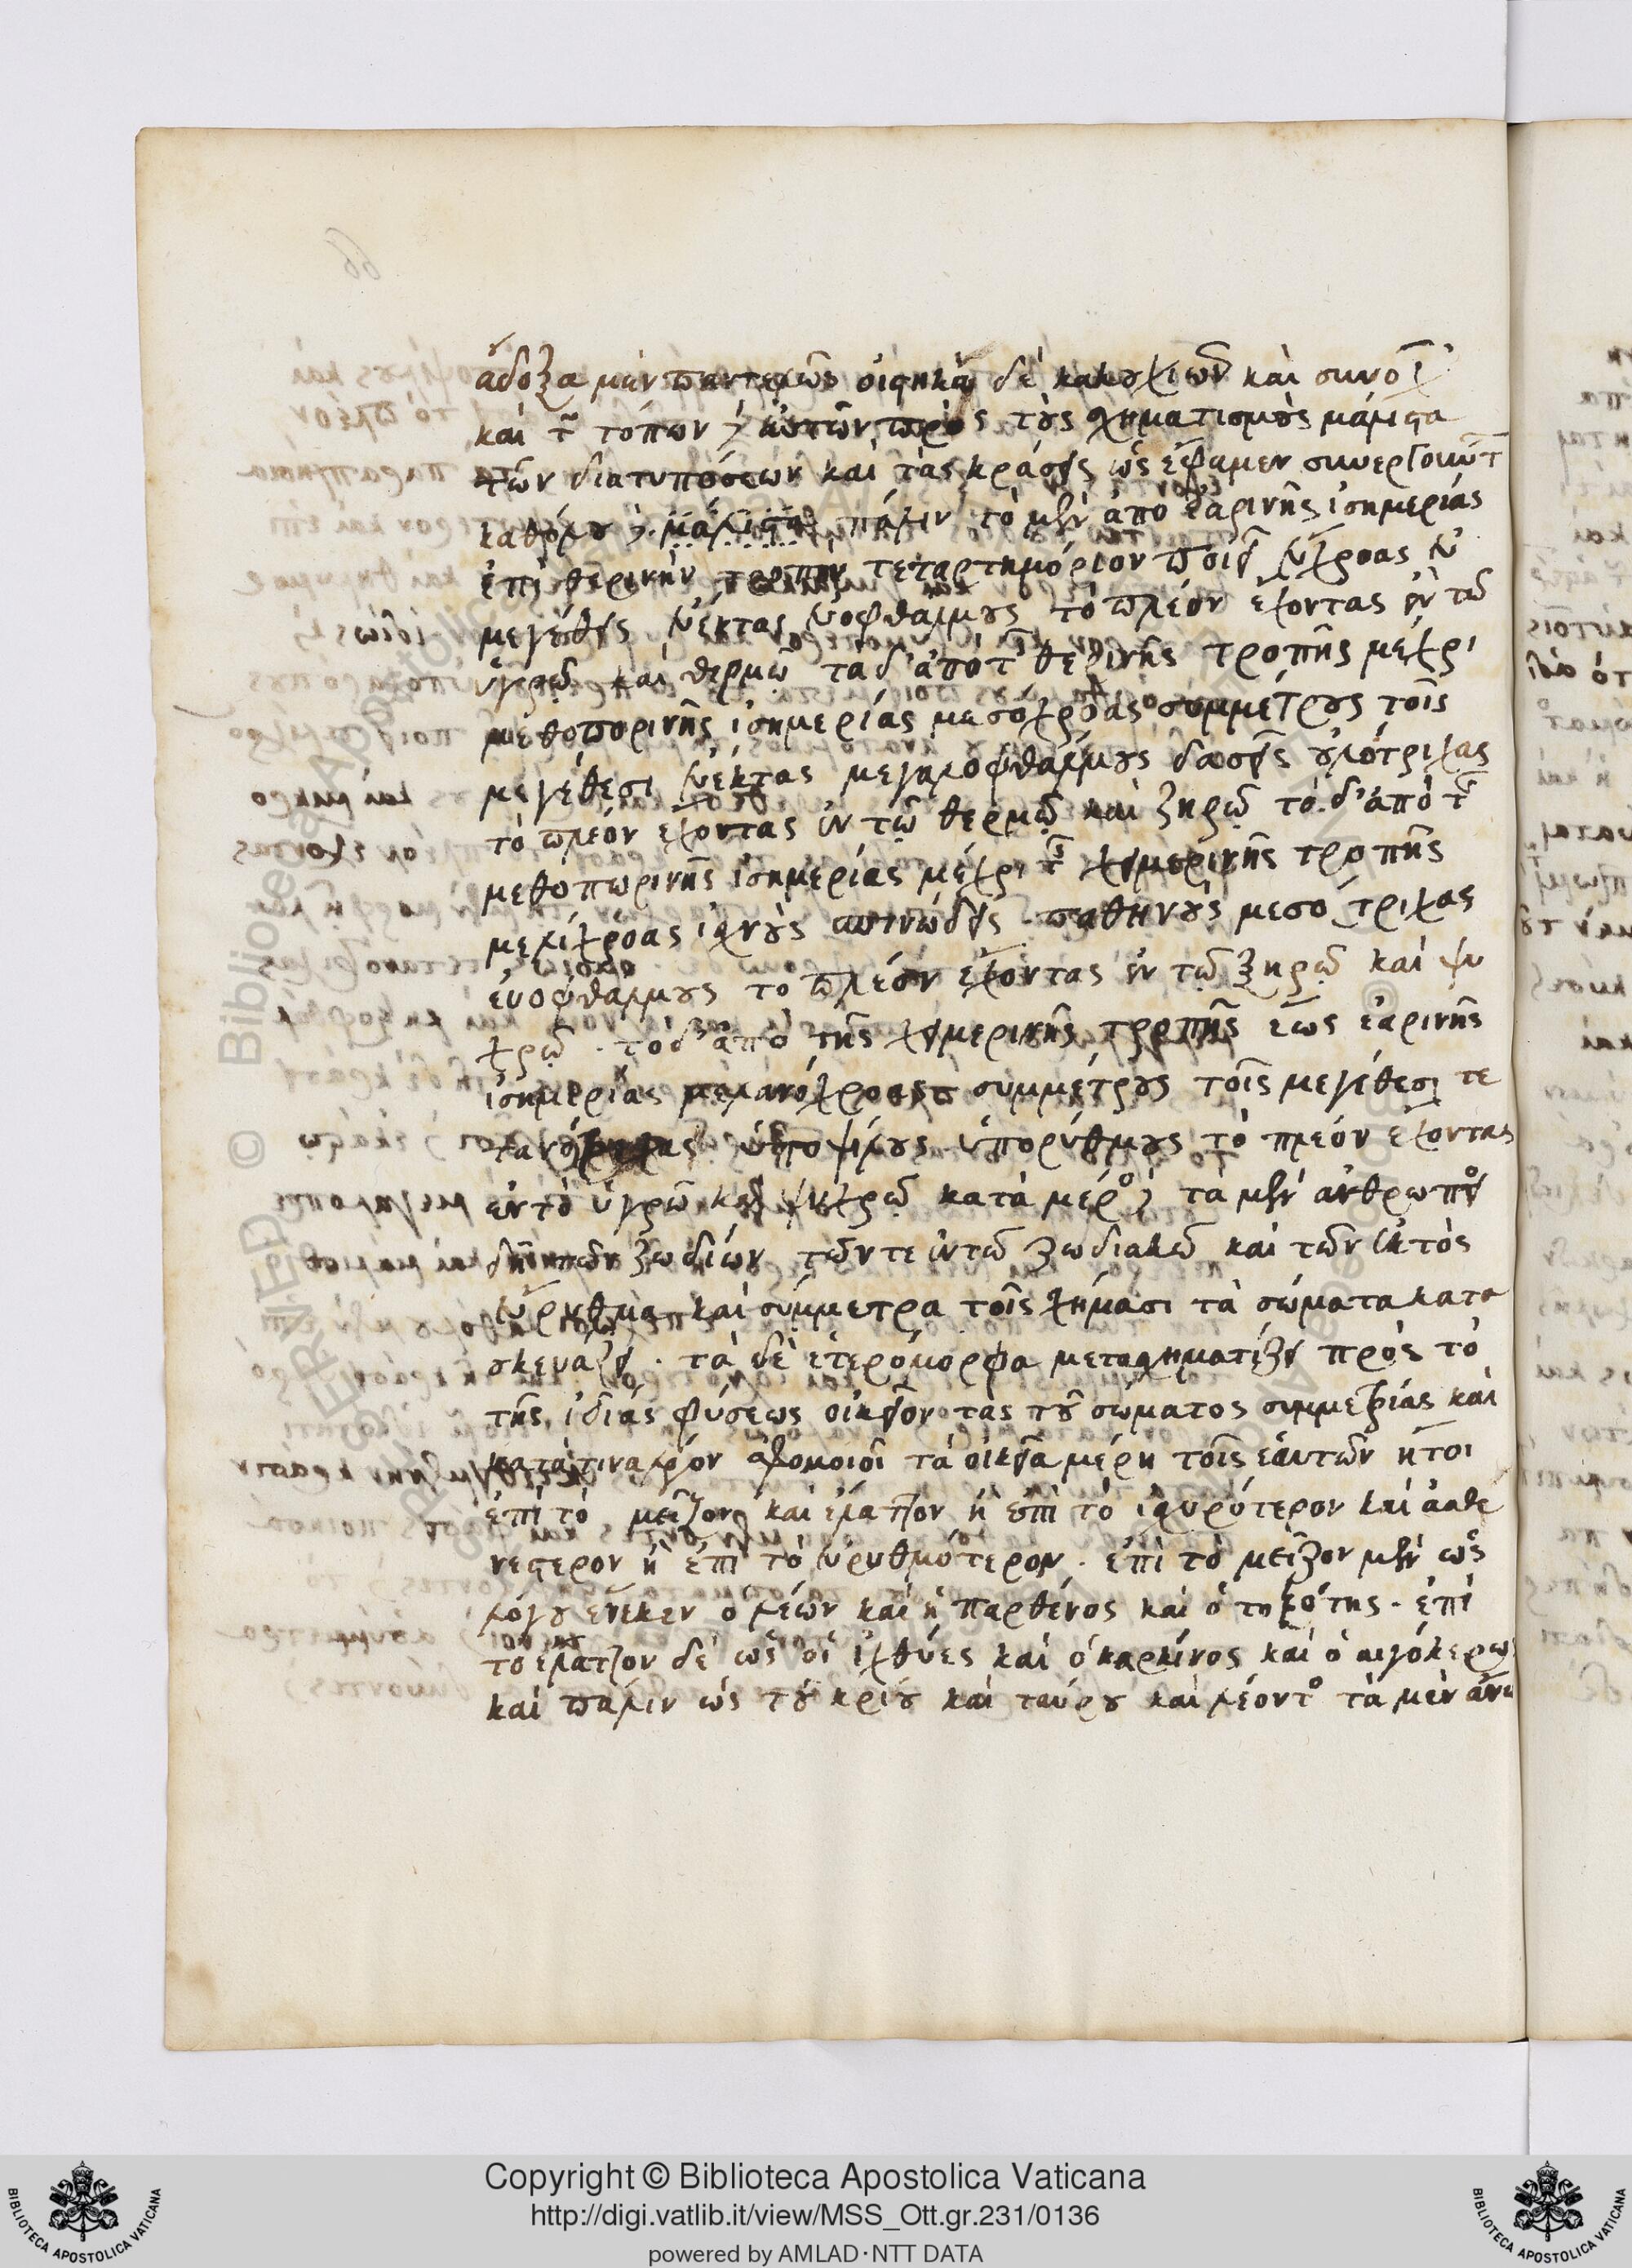 ἄδοξα μὲν παντελῶς οἰστικὰ δὲ κακουχιῶν καὶ συνοχ
καὶ τ τόπων δὲ αὐτῶν πρὸς τοὺς σχηματισμοὺς μάλιστα
τῶν διατυπόσεων καὶ τὰς κράσεις ὡς ἔφαμεν συνεργούντ
καθόλου γ μάλιστα πάλιν τὸ μὲν ἀπὸ ἐαρινῆς ἰσημερίας
ἐπὶ θερινὴν τροπὴν τεταρτημόριον ποιεῖ εὔχροας εὐ
μεγέθεις εὐέκτας εὐοφθάλμους τὸ πλέον ἔχοντας ἐν τῶ
ὑγρῷ καὶ θερμῷ τὰ δ' ἀπὸ τ θερινῆς τροπῆς μέχρι
μεθοπορινῆς ἰσημερίας μεσόχροας συμμέτρους τοῖς
μεγέθεσι εὐέκτας μεγαλοφθάλμους δασεῖς οὐλότριχας
τὸ πλέον ἔχοντας ἐν τῷ θερμῷ καὶ ξηρῷ τὸ δ' ἀπὸ τ
μεθοπωρινῆς ἰσημερίας μέχρι τ χειμερινῆς τροπῆς
μελίχροας ἰσχνοὺς σπινώδεις παθηνοὺς μεσότριχας
εὐοφθάλμους το πλέον ἔχοντας ἐν τῷ ξηρῷ καὶ ψυ
χρῷ. τὸ δ' ἀπὸ τῆς χειμερινῆς τροπῆς ἕως ἐαρινῆς
ἰσημερίας μελανόχροας συμμέτρους τοῖς μεγέθεσι τε
τανότριχας ὑποψίλους ὑπορύθμους τὸ πλέον ἔχοντας
ἐν τὸ ὑγρῶ καὶ ψυχρῷ κατὰ μέρο δὲ τὰ μὲν ἀνθρωποει
δῆ τῶν ζωδίων τῶν τε ἐν τῶ ζωδιακῶ καὶ τῶν ἐκτὸς
εὔρυθμα καὶ σύμμετρα τοῖς χήμασι τὰ σώματα κατα
σκευάζει. τὰ δὲ ἑτερόμορφα μετασχηματίζει πρὸς τὸ
τῆς ἰδίας φύσεως οἰκεῖον τὰς τοῦ σώματος συμμετρίας καὶ
κατὰ τινα λόγον ἀφομοιοῖ τὰ οἰκεῖα μέρη τοῖς ἑαυτῶν ἤτοι
ἐπὶ τὸ μεῖζον καὶ ἔλαττον ἢ ἐπὶ τὸ ἰσχυρότερον καὶ ἀσθε
νέστερον ἢ ἐπὶ τὸ εὐρυθμότερον. ἐπὶ τὸ μεῖζον μὲν ὡς
λόγου ἕνεκεν ὁ λέων καὶ ἡ παρθένος καὶ ὁ τοξότης. ἐπὶ
το ἔλαττον δὲ ὡς οἱ ἰχθύες καὶ ὁ καρκίνος καὶ ὁ αἰγόκερως
καὶ πάλιν ὡς τοῦ κριοῦ καὶ ταύρου καὶ λέοντο τὰ μὲν ἄνω
Copyright © Biblioteca Apostolica Vaticana
http://digi.vatlib.it/view/MSS_Ott.gr.231/0136
powered by AMLAD·NTT DATA
BIBLIOTECA APOSTOLICA VATICANA
BIBLIOTECA APOSTOLICA VATICANA